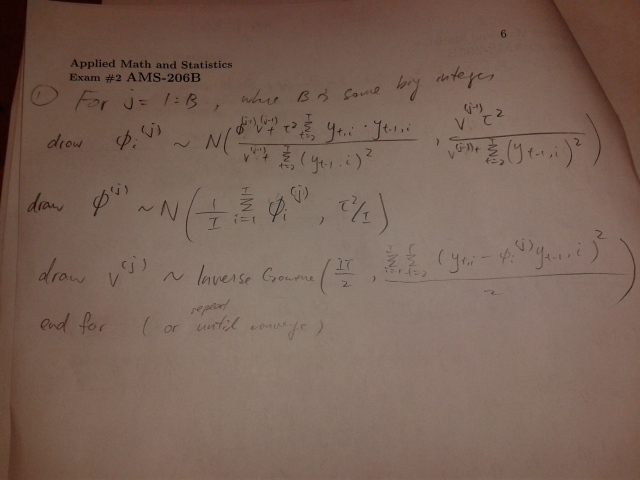 6
Applied Math and Statistics
Exam #2 AMS-206B
① For j = 1:B, where B is some big integer
draw φᵢ^(j) ~ N( (φ^(j-1) v^(j-1) + τ² Σ_{t=2}^{T} y_{t,i} · y_{t-1,i}) / (v^(j-1) + Σ_{t=2}^{T} (y_{t-1,i})²) , (v^(j-1) τ²) / (v^(j-1) + Σ_{t=2}^{T} (y_{t-1,i})²) )
draw φ^(j) ~ N( 1/I Σ_{i=1}^{I} φᵢ^(j) , τ²/I )
draw v^(j) ~ Inverse Gamma ( IT/2 , (Σ_{i=1}^{I} Σ_{t=2}^{T} (y_{t,i} - φᵢ^(j) y_{t-1,i})²) / 2 )
repeat
end for ( or until converge )